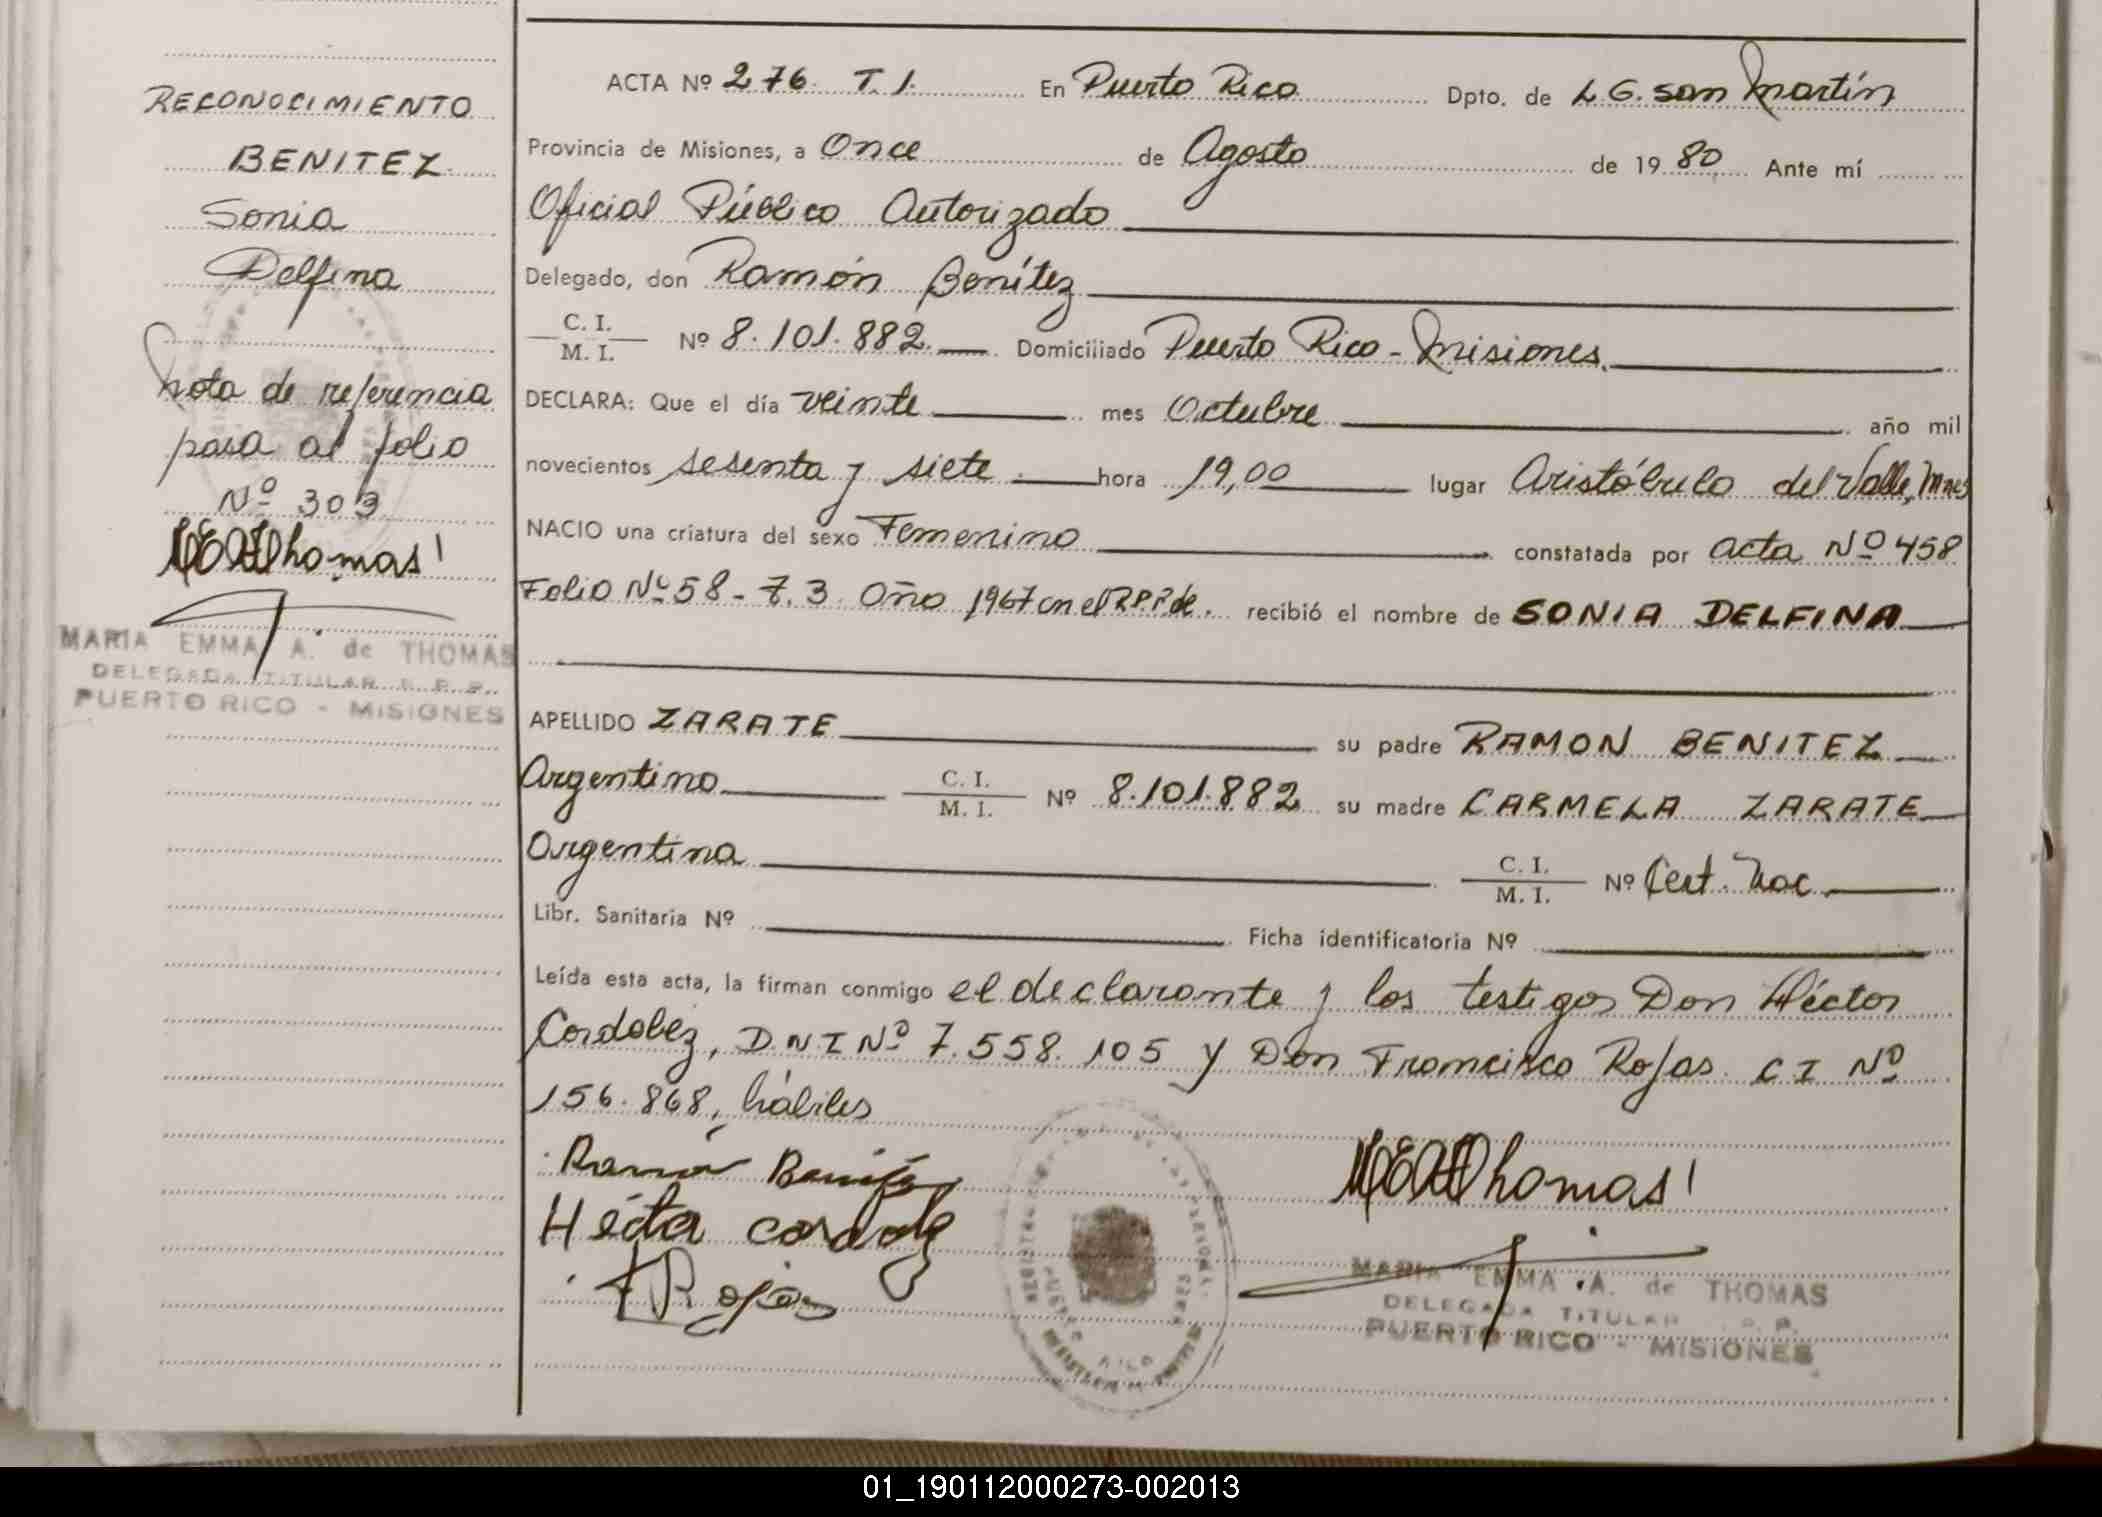 RECONOCIMIENTO
BENITEZ
Sonia
Delfina
Nota de referencia
para al folio
Nº 303
MEAThomas
MARIA EMMA A. de THOMAS
DELEGADA TITULAR R. P. P.
PUERTO RICO - MISIONES
ACTA Nº 276. T. 1. En Puerto Rico Dpto. de L. G. San Martín
Provincia de Misiones, a Once de Agosto de 1980 Ante mí
Oficial Público Autorizado
Delegado, don Ramón Benítez
C. I.
M. I. Nº 8.101.882. Domiciliado Puerto Rico - Misiones.
DECLARA: Que el día veinte mes Octubre año mil
novecientos sesenta y siete hora 19,00 lugar Aristóbulo del Valle, Mnes
NACIO una criatura del sexo Femenino constatada por acta Nº 458
Folio Nº 58 - T. 3. Año 1967 en el R.P.P. de. recibió el nombre de SONIA DELFINA
APELLIDO ZARATE su padre RAMON BENITEZ
Argentino C. I. M. I. Nº 8.101.882 su madre CARMELA ZARATE
Argentina C. I. M. I. Nº Cert. Nac.
Libr. Sanitaria Nº Ficha identificatoria Nº
Leída esta acta, la firman conmigo el declarante y los testigos Don Héctor
Cordobez, D.N.I Nº 7.558.105 y Don Francisco Rojas. C I Nº
156.868, hábiles
Ramón Benítez
Héctor Cordobez
F Rojas
MEAThomas
MARIA EMMA A. de THOMAS
DELEGADA TITULAR R. P. P.
PUERTO RICO - MISIONES
01_190112000273-002013